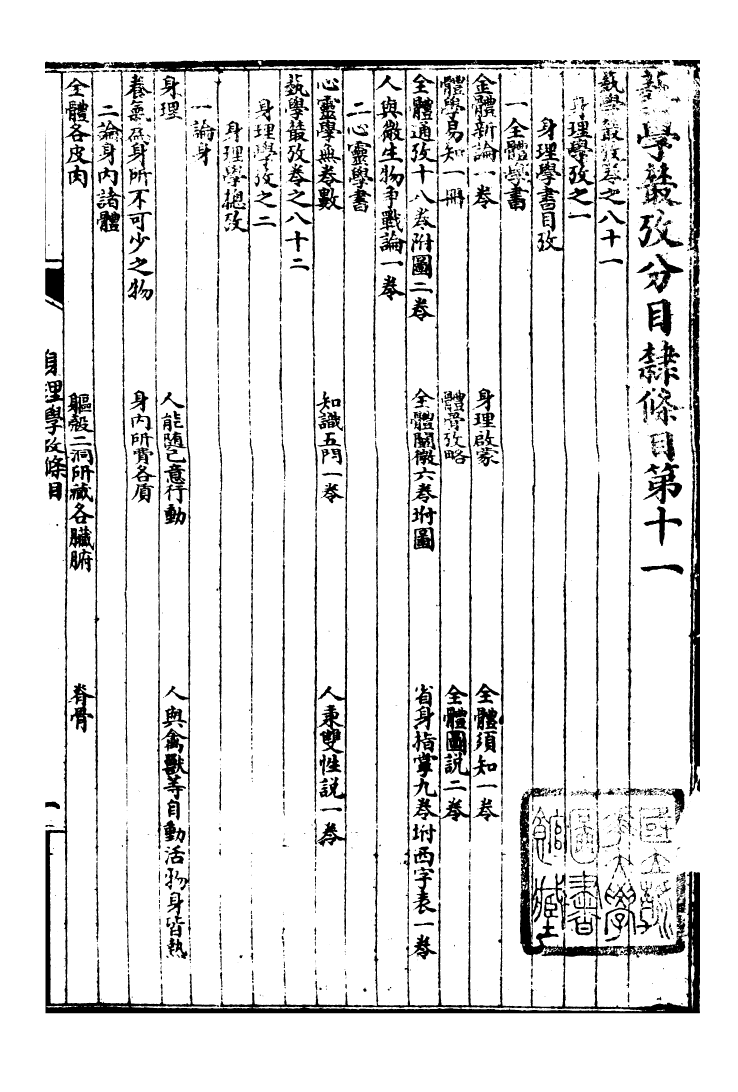 藝學叢攷分目隸條目第十一
藝學叢攷卷之八十一
身理學攷之一
身理學書目攷
一全體學書
全體新論一卷　身理啟蒙　全體須知一卷
體學易知一冊　體骨攷略　全體圖說二卷
全體通攷十八卷附圖二卷　全體闡微六卷坿圖　省身指掌九卷坿西字表一卷
人與微生物爭戰論一卷
二心靈學書
心靈學無卷數　知識五門一卷　人秉雙性說一卷
藝學叢攷卷之八十二
身理學攷之二
身理學總攷
一論身
身理　人能隨己意行動　人與禽獸等自動活物身皆熱
養氣為身所不可少之物　身內所需各質
二論身內諸體
全體各皮肉　軀殼二洞所藏各臟腑　脊骨
身理學攷條目
一
國立
大學
圖書
館藏